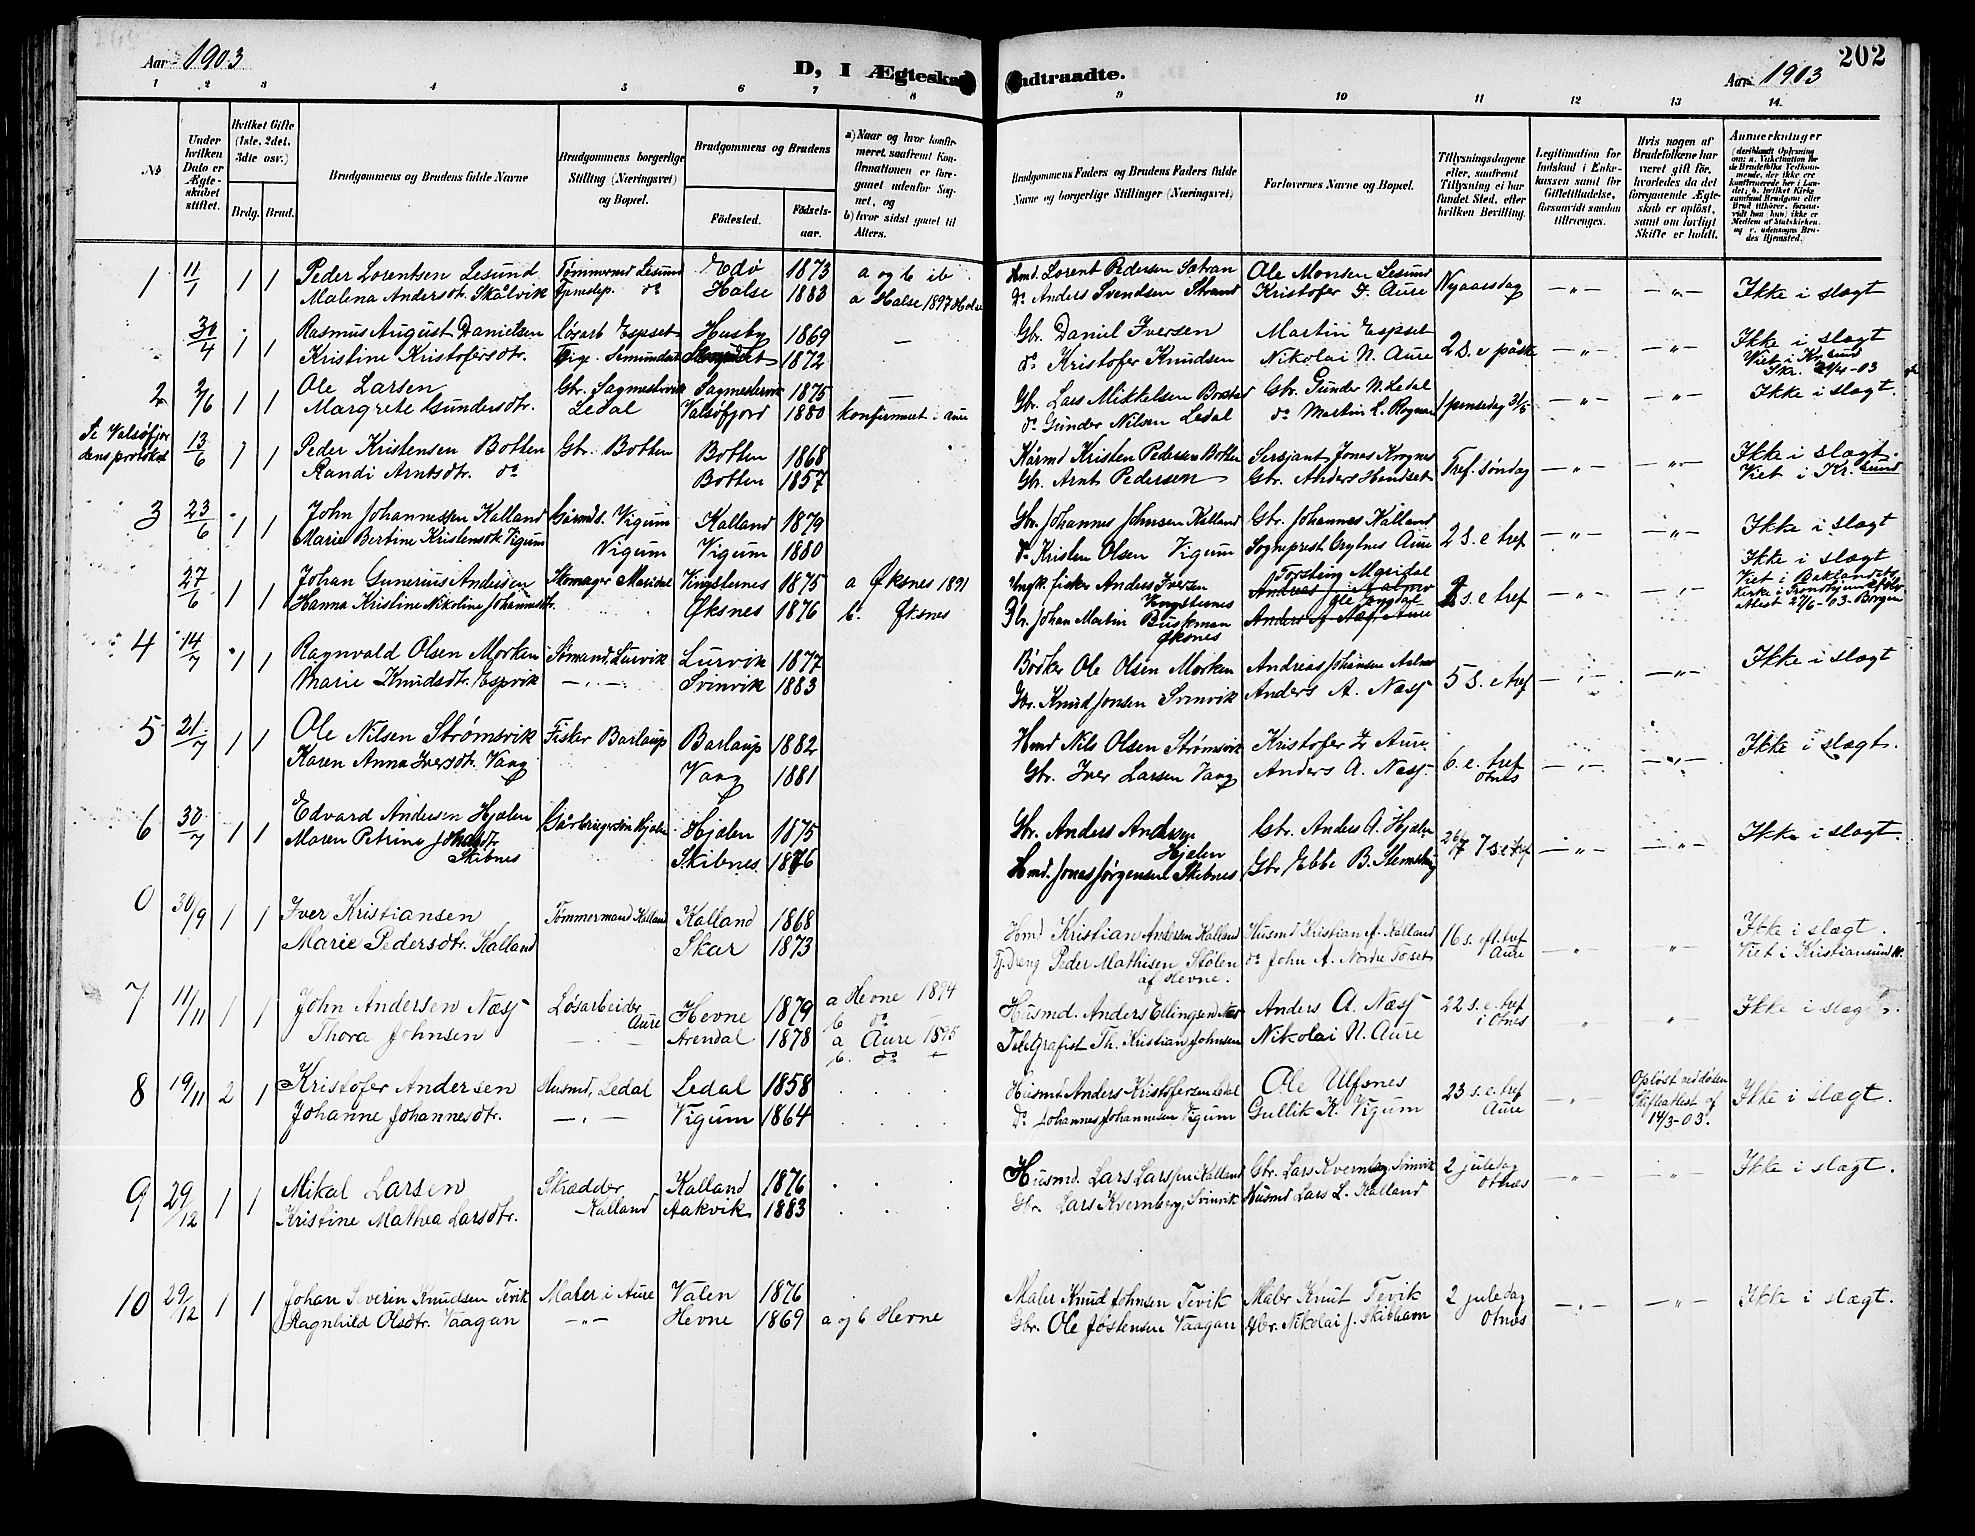 202
Aar 1903
D, I Ægteska
ndtraadte.
Aar 1903
1 2 3 4 5 6 7 8 9 10 11 12 13 14.
№
Under hvilken Dato er Ægteskabet stiftet.
Hvilket Gifte (1ste, 2det, 3die osv.)
Brdg. Brud.
Brudgommens og Brudens fulde Navne
Brudgommens borgerlige Stilling (Næringsvei) og Bopæl.
Brudgommens og Brudens
Fødested. Fødselsaar.
a) Naar og hvor konfirmeret, saafremt Konfirmationen er foregaaet udenfor Sognet, og b) hvor sidst gaaet til Alters.
Brudgommens Faders og Brudens Faders fulde Navne og borgerlige Stillinger (Næringsvei)
Forlovernes Navne og Bopæl.
Tillysningsdagene eller, saafremt Tillysning ei har fundet Sted, efter hvilken Bevilling.
Legitimation for Indskud i Enkekassen samt for Giftetilladelse, forsaavidt saadan tiltrænges.
Hvis nogen af Brudefolkene har været gift før, hvorledes da det foregaaende Ægteskab er opløst, samt om lovligt Skifte er holdt.
Anmerkninger
1 11/1 1 1 Peder Lorentsen Lesund Tømmermd Lesund Edø 1873 a og b ib Hmd. Lorent Pedersen Sætran Ole Monsen Lesund Nyaarsdag —„— —„— Ikke i slægt
Malena Andersdtr. Skålvik Tjenestep. do Halse 1883 a Halse 1897 Halse Do Anders Svendsen Strand Kristofer I. Aure
30/4 1 1 Rasmus August Danielsen løsarb Espset Husby 1869 — Gbr. Daniel Iversen Martin Espset 2 s. e påske —„— —„— Ikke i slægt
Kristine Kristofersdtr. 1872 do Kristofer Knudsen Nikolai N. Aure Viet i Kr.sund
2 2/6 1 1 Ole Larsen Gbr. Sagmestervik Sagmestervik 1875 Gbr. Lars Mikkelsen Gbr. Gunder N. Ledal 1 pinsedag 31/5 —„— —„— Ikke i slægt.
Margrete Gundersdtr. Ledal Valsøfjord 1880 konfirmeret i Aure do Gunder Nilsen Ledal do Martin L. Rognan
Se Valsøfjordens protokol 13/6 1 1 Peder Kristensen Botten Gbr. Botten Botten 1868 Kårmd Kristen Pedersen Botten Sersjant Jonas Krognes Tref. søndag —„— —„— Ikke i slægt.
Randi Arntsdtr. do Botten 1857 Gbr. Arnt Pedersen Gbr. Anders Hendset Viet i Kr.sund
3 23/6 1 1 John Johannessen Kalland Gårmds. Vigum Kalland 1879 Gbr. Johannes Johnsen Kalland Gbr. Johannes Kalland 2 s. e tref —„— —„— Ikke i slægt
Marie Bertine Kristensdtr. Vigum Vigum Vigum 1880 do Kristen Olsen Vigum Sogneprest Crytnes Aure
27/6 1 1 Johan Gunerius Andersen Skomager Maridal Kingsternes 1875 a Øksnes 1891 Ungk. fisker Anders Iversen Kingsternes Torsting Maridal s. e tref —„— —„— Ikke i slægt
Hanna Kristine Nikoline Johansdtr. Øksnes 1876 b. Øksnes Gbr. Johan Martin Buskman Øksnes Anders A. Næsj Aure Viet i Baklandets Kirke i Trondhjem attest 27/6-03 Borgen
4 14/7 1 1 Ragnvald Olsen Morken Sømand, Lurvik Lurvik 1877 Bøsker Ole Olsen Morken Andreas Johansen 5 s. e tref —„— —„— Ikke i slægt
Marie Knudsdtr. Espvik —„— Svinvik 1883 Gbr. Knud Jonsen Svinvik Anders A. Næsj
5 21/7 1 1 Ole Nilsen Strømsvik Fisker Barlaup Barlaup 1882 Hmd Nils Olsen Strømsvik Kristofer Ir Aure 6. e. tref Otnes —„— —„— Ikke i slægt.
Karen Anna Iversdtr. Vang Vang 1881 Gbr. Iver Larsen Vang Anders A. Næsj.
6 30/7 1 1 Edvard Andersen Hjælen Gårbrugersøn Hjælen Hjælen 1875 Gbr. Anders Andersen Hjelen Gbr. Anders A. Hjælen 26/7 7 s. e tref —„— —„— Ikke i slægt.
Maren Petrine Jonasdtr Skibnes Skibnes 1876 Hmd. Jonas Jørgensen Skibnes Gbr Ebbe B. Stemshaug
0 30/9 1 1 Iver Kristiansen Tømmermand Kalland Kalland 1868 Hmd Kristian Andersen Kalland Husmd Kristian A. Kalland 16 s. eft. tref Aure „ „ Ikke i slægt.
Marie Pedersdtr. Kalland Skar 1873 Tj. Dreng Peder Mathisen Stølen af Hevne. do John A. Nordre Todset Viet i Kristiansund N.
7 11/11 1 1 John Andersen Næsj Løsarbeider Aure Hevne 1879 a Hevne 1894 b do Husmd. Anders Ellingsen Næs Anders A. Næsj 22 s. e. tref i Otnes „ „ Ikke i slægt.
Thora Johnsen —„— Arendal 1878 a Aure 1895 b. do Telegrafist Th. Kristian Johnsen Nikolai N. Aure
8 19/11 2 1 Kristofer Andersen Husmd, Ledal Ledal 1858 Husmd. Anders Kristofersen Ledal Ole Ulfsnes 23 s. e. tref Aure —„— Opløst ved døden Skifteattest af 14/3-03. Ikke i slægt.
Johanne Johannesdtr. —„— Vigum 1864 Do Johannes Johannesen Vigum Gullik K. Vigum
9 29/12 1 1 Mikal Larsen Skrædder Kalland Kalland 1876 Husmd. Lars Larsen Kalland Gbr. Lars Kvernberg Svinvik 2 juledag Otnes —„— —„— Ikke i slægt.
Kristine Mathea Larsdtr. Aakvik 1883 Gbr. Lars Kvernberg, Svinvik Husmd Lars L. Kalland
10 29/12 1 1 Johan Severin Knudsen Tevik Maler i Aure Valen 1876 Maler Knud Johnsen Tevik Maler Knut Tevik 2 juledag Otnes —„— —„— Ikke i slægt.
Ragnhild Olsdtr. Vaagan —„— Hevne 1869 a og b Hevne Gbr. Ole Jøstensen Vaagan Gbr. Nikolai J. Skibhavn